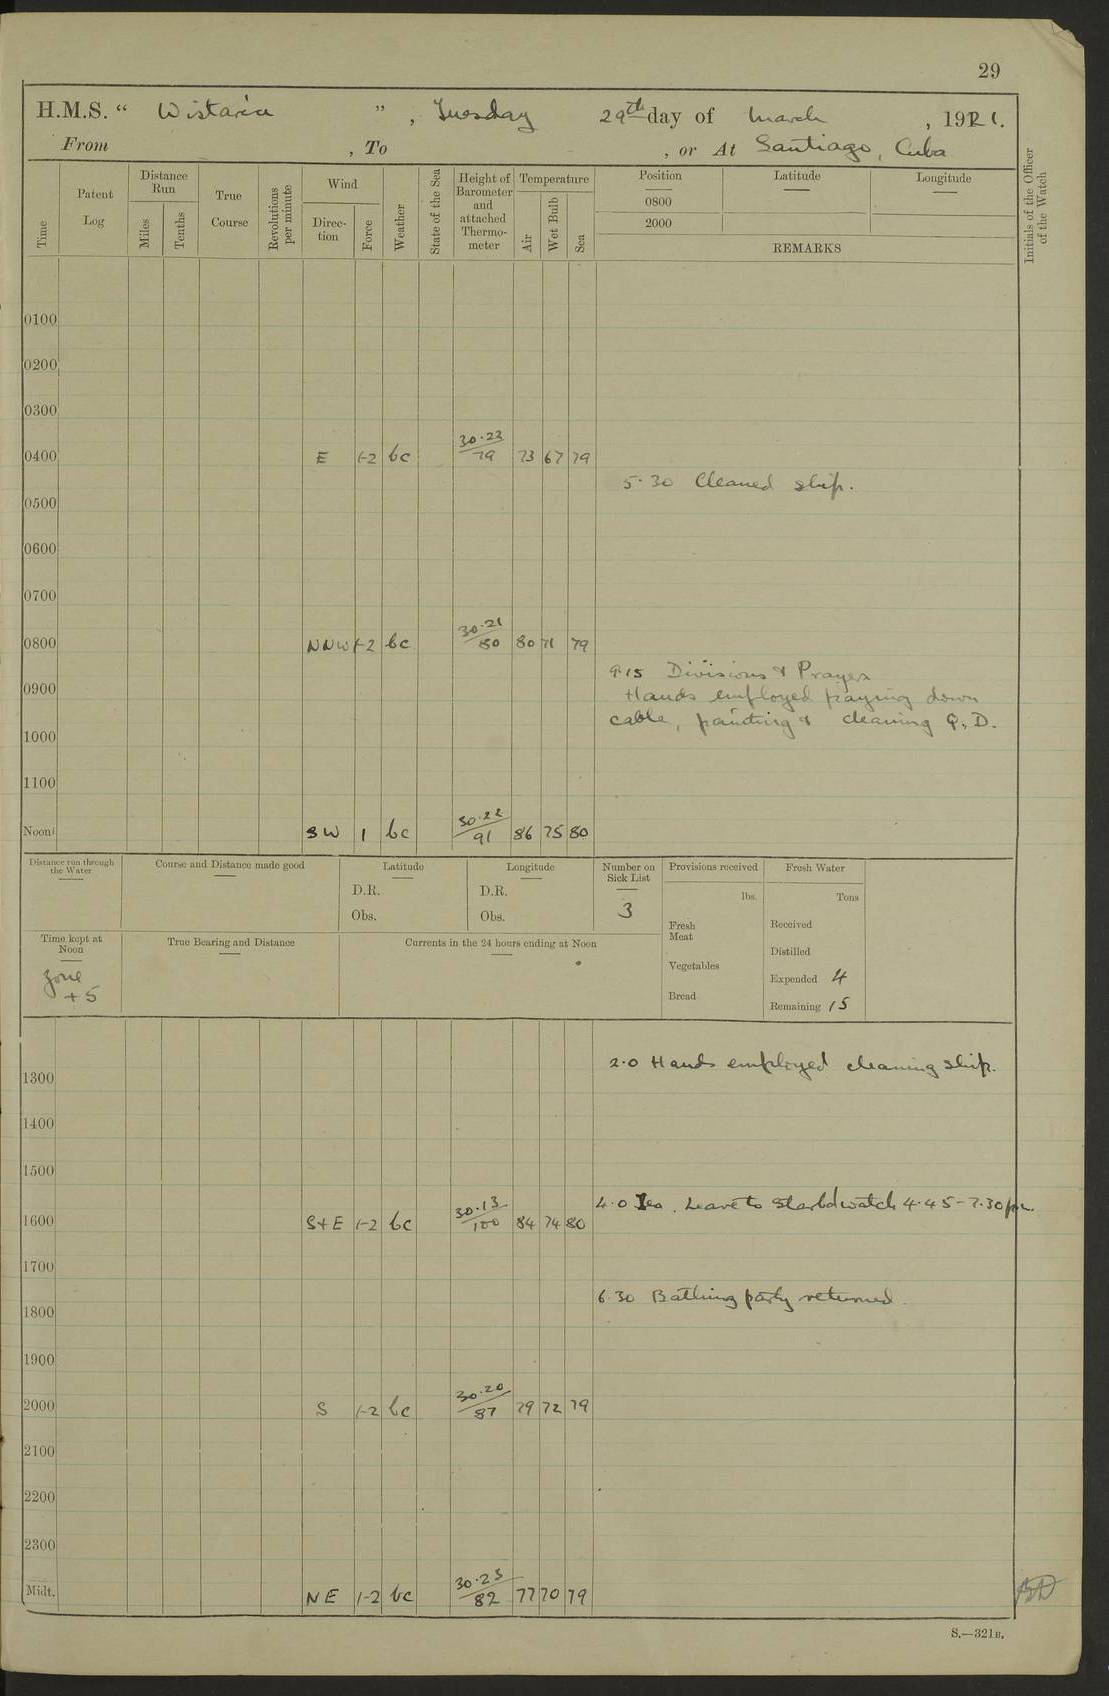 29
H.M.S. “ Wistaria ” , Tuesday 29th day of March , 1921.
From , To , or At Santiago, Cuba
Time
Patent Log
Distance Run
Miles
Tenths
True Course
Revolutions per minute
Wind
Direction
Force
Weather
State of the Sea
Height of Barometer and attached Thermometer
Temperature
Air
Wet Bulb
Sea
Position Latitude Longitude
0800
2000
REMARKS
Initials of the Officer of the Watch
0100
0200
0300
0400 E 1-2 bc 30.23/79 73 67 79
5.30 Cleaned ship.
0500
0600
0700
0800 NNW 1-2 bc 30.21/80 80 71 79
9.15 Divisions & Prayers
0900 Hands employed paying down
cable, painting & cleaning Q.D.
1000
1100
Noon SW 1 bc 30.22/91 86 75 80
Distance run through the Water
Course and Distance made good
Latitude
D.R.
Obs.
Longitude
D.R.
Obs.
Number on Sick List
3
Provisions received
lbs.
Fresh Meat
Vegetables
Bread
Fresh Water
Tons
Received
Distilled
Expended 4
Remaining 15
Time kept at Noon
Zone
+5
True Bearing and Distance
Currents in the 24 hours ending at Noon
2.0 Hands employed cleaning ship.
1300
1400
1500
4.0 Tea. Leave to Starbd watch 4.45-7.30 pm.
1600 S+E 1-2 bc 30.13/100 84 74 80
1700
6.30 Bathing party returned
1800
1900
2000 S 1-2 bc 30.20/87 79 72 79
2100
2200
2300
Midt. NE 1-2 bc 30.23/82 77 70 79
S.—321B.